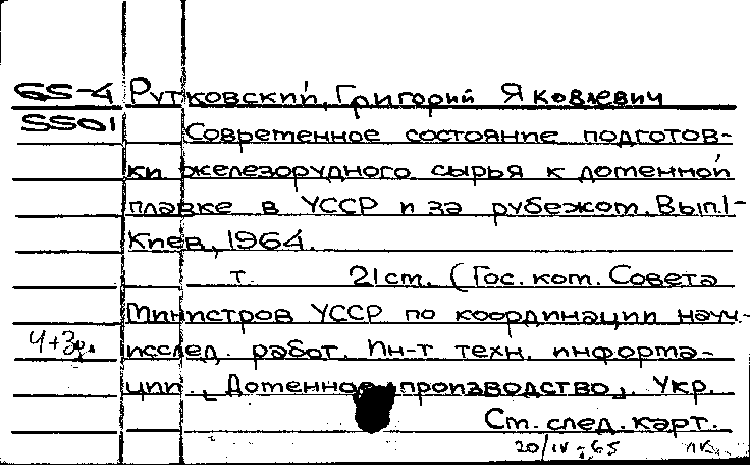 65-4 Рутковский, Григорий Яковлевич
5501 Современное состояние подготов-
ки железорудного сырья к доменной
плавке в УССР и за рубежом. Вып.1-
Киев, 1964.
т. 21 см. (Гос. ком. Совета
Министров УССР по координации науч.-
исслед. работ. Ин-т техн. информа-
ции. "Доменное производство". Укр.
Ст. след. карт.
20/IV-65